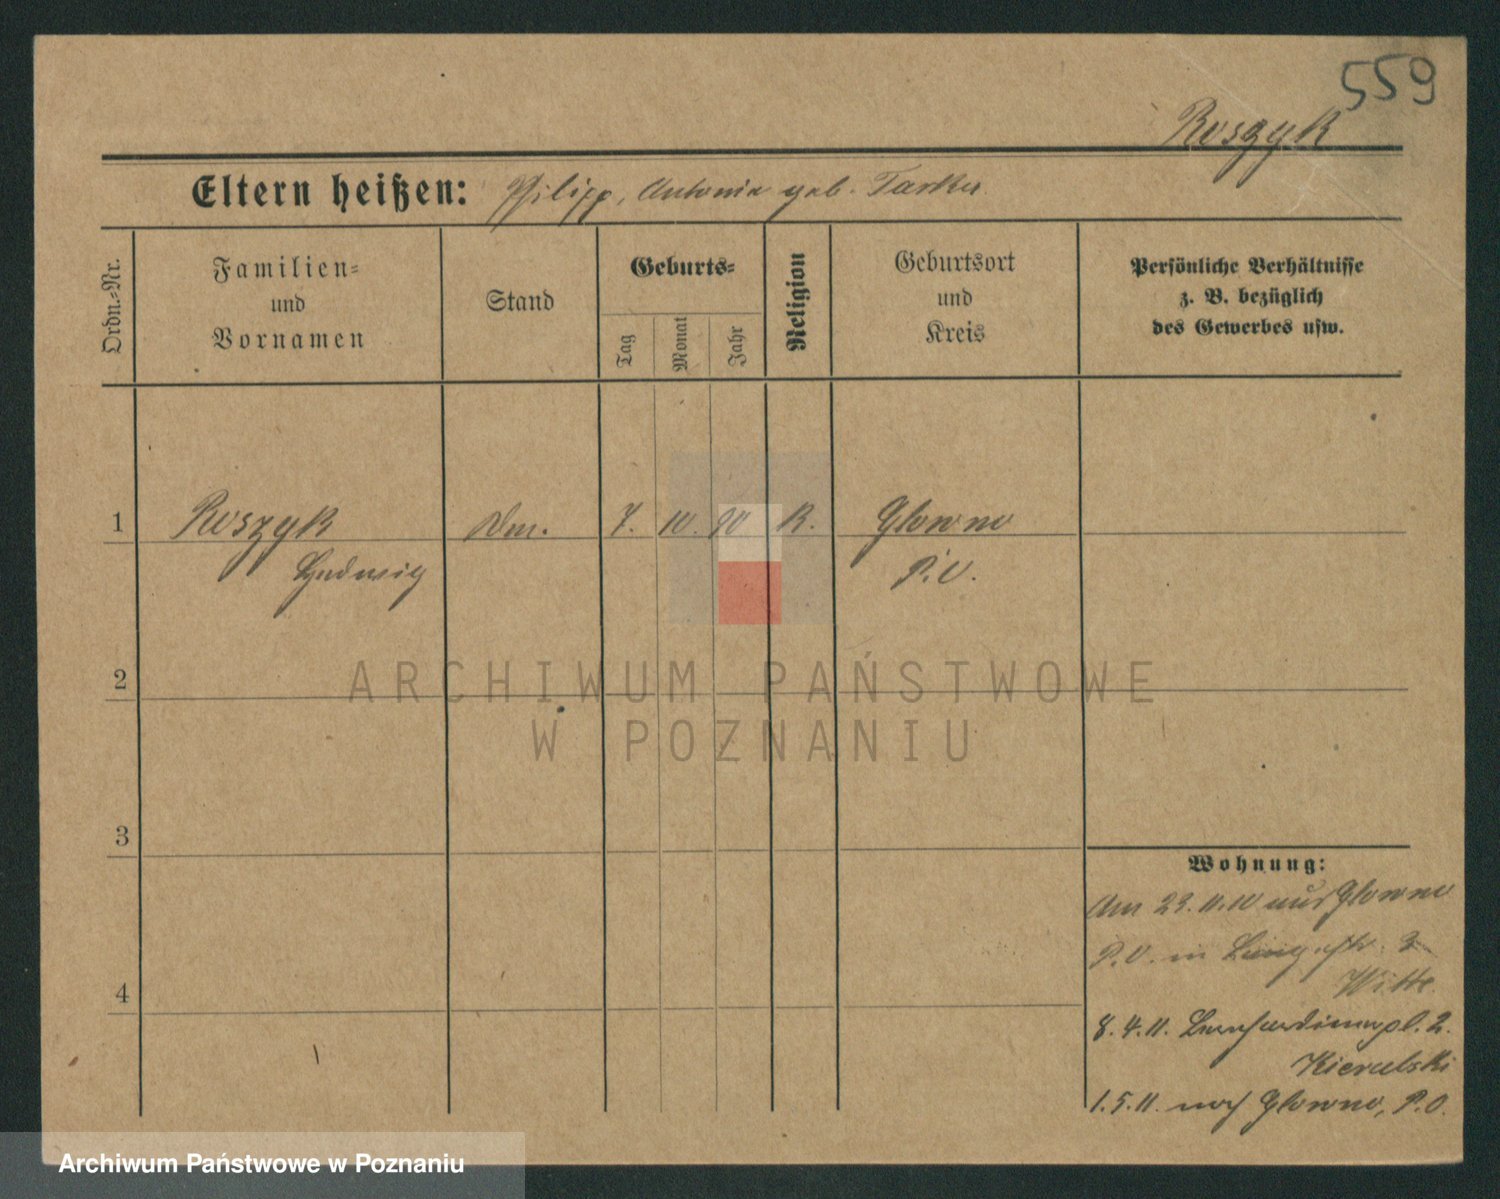 559
Roszyk
Eltern heißen: Philipp, Antonie geb.
Ordn.=Nr.
Familien=
und
Vornamen
Stand
Geburts=
Tag
Monat
Jahr
Religion
Geburtsort
und
Kreis
Persönliche Verhältnisse
z. B. bezüglich
des Gewerbes usw.
1 Roszyk 7. 10. 90 K. Glowno
Ludwig P.O.
2
3
4
Wohnung:
Am 23.11.10 aus Glowno
P.O. in Langestr. 3
Witte
8.4.11. Bernhardinerpl. 2.
1.5.11. nach Glowno, P.O.
ARCHIWUM PAŃSTWOWE
W POZNANIU
Archiwum Państwowe w Poznaniu